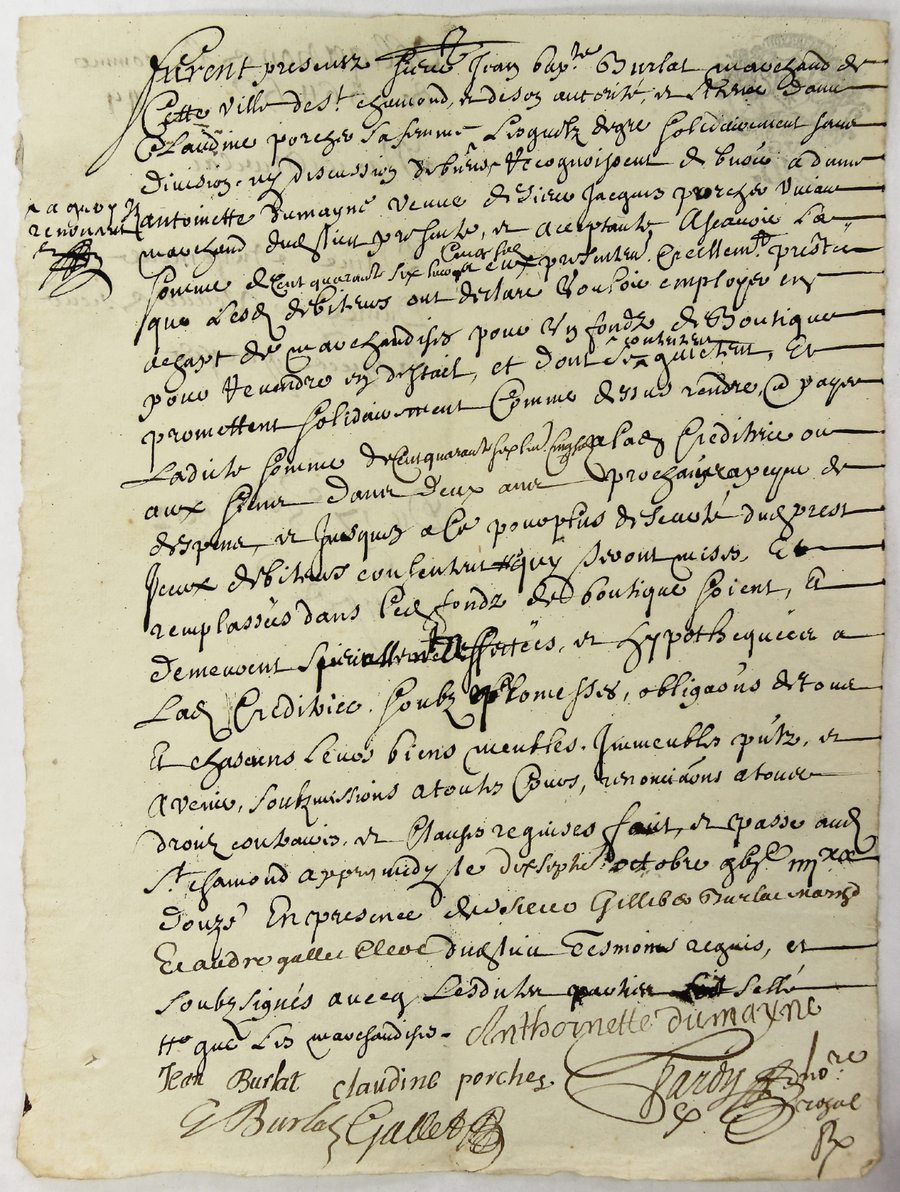 furent presentz Sieur Jean bap.te Burlat marchand de
Cette ville de S.t chamond, et de son autorité, et licence dame
Claudine porcher sa femme Lesquelz de gre solidairement sans
division, ny discussion de biens Recognoissent debvoir a dame
antoinette Dumayne veuve de Sieur Jacques porcher vivan
marchand dud lieu presente, et aceptante Ascavoir La
somme de Cent quarante six livres Cinq solz presentem.t
que Lesd debiteurs ont declaré vouloir employer en
achapt de marchandises pour un fondz de Boutique
pour Revendre en destail, et dont contentent quictent, Et
promettent solidairement Comme dessus rendre, et payer
Ladicte somme de Cent quarante six livres Cinq solz a lad Creditrice ou
aux siens dans deux ans prochains a peyne de
despens, et Jusques a Ce pour plus de seurté dud prest
Iceux debiteurs consentent quy seront mises, Et
remplassées dans Led fondz de boutique soient, Et
Demeurent specialement affectées, et hypothequées a
Lad Creditrice. soubz promesses, obligaons de tous
Et chascuns Leurs biens meubles, Immeubles pntz, et
avenir, soubzmissions a toutes Cours, renonciaons a tous
droitz contraires, et Clauses requises fait, et passe aud
S.t chamond apres midy le dixsept octobre
Douzé En presence de Sieur Gilibert Burlat march
Et andre gallet Clerc dud lieu Tesmoins requis, et
soubzsignés avecq Lesdites parties sellé
que Les marchandises. Anthoinette dumayne
Jean Burlat claudine porcher
Hardy no.re
royal
G Burlat Gallet